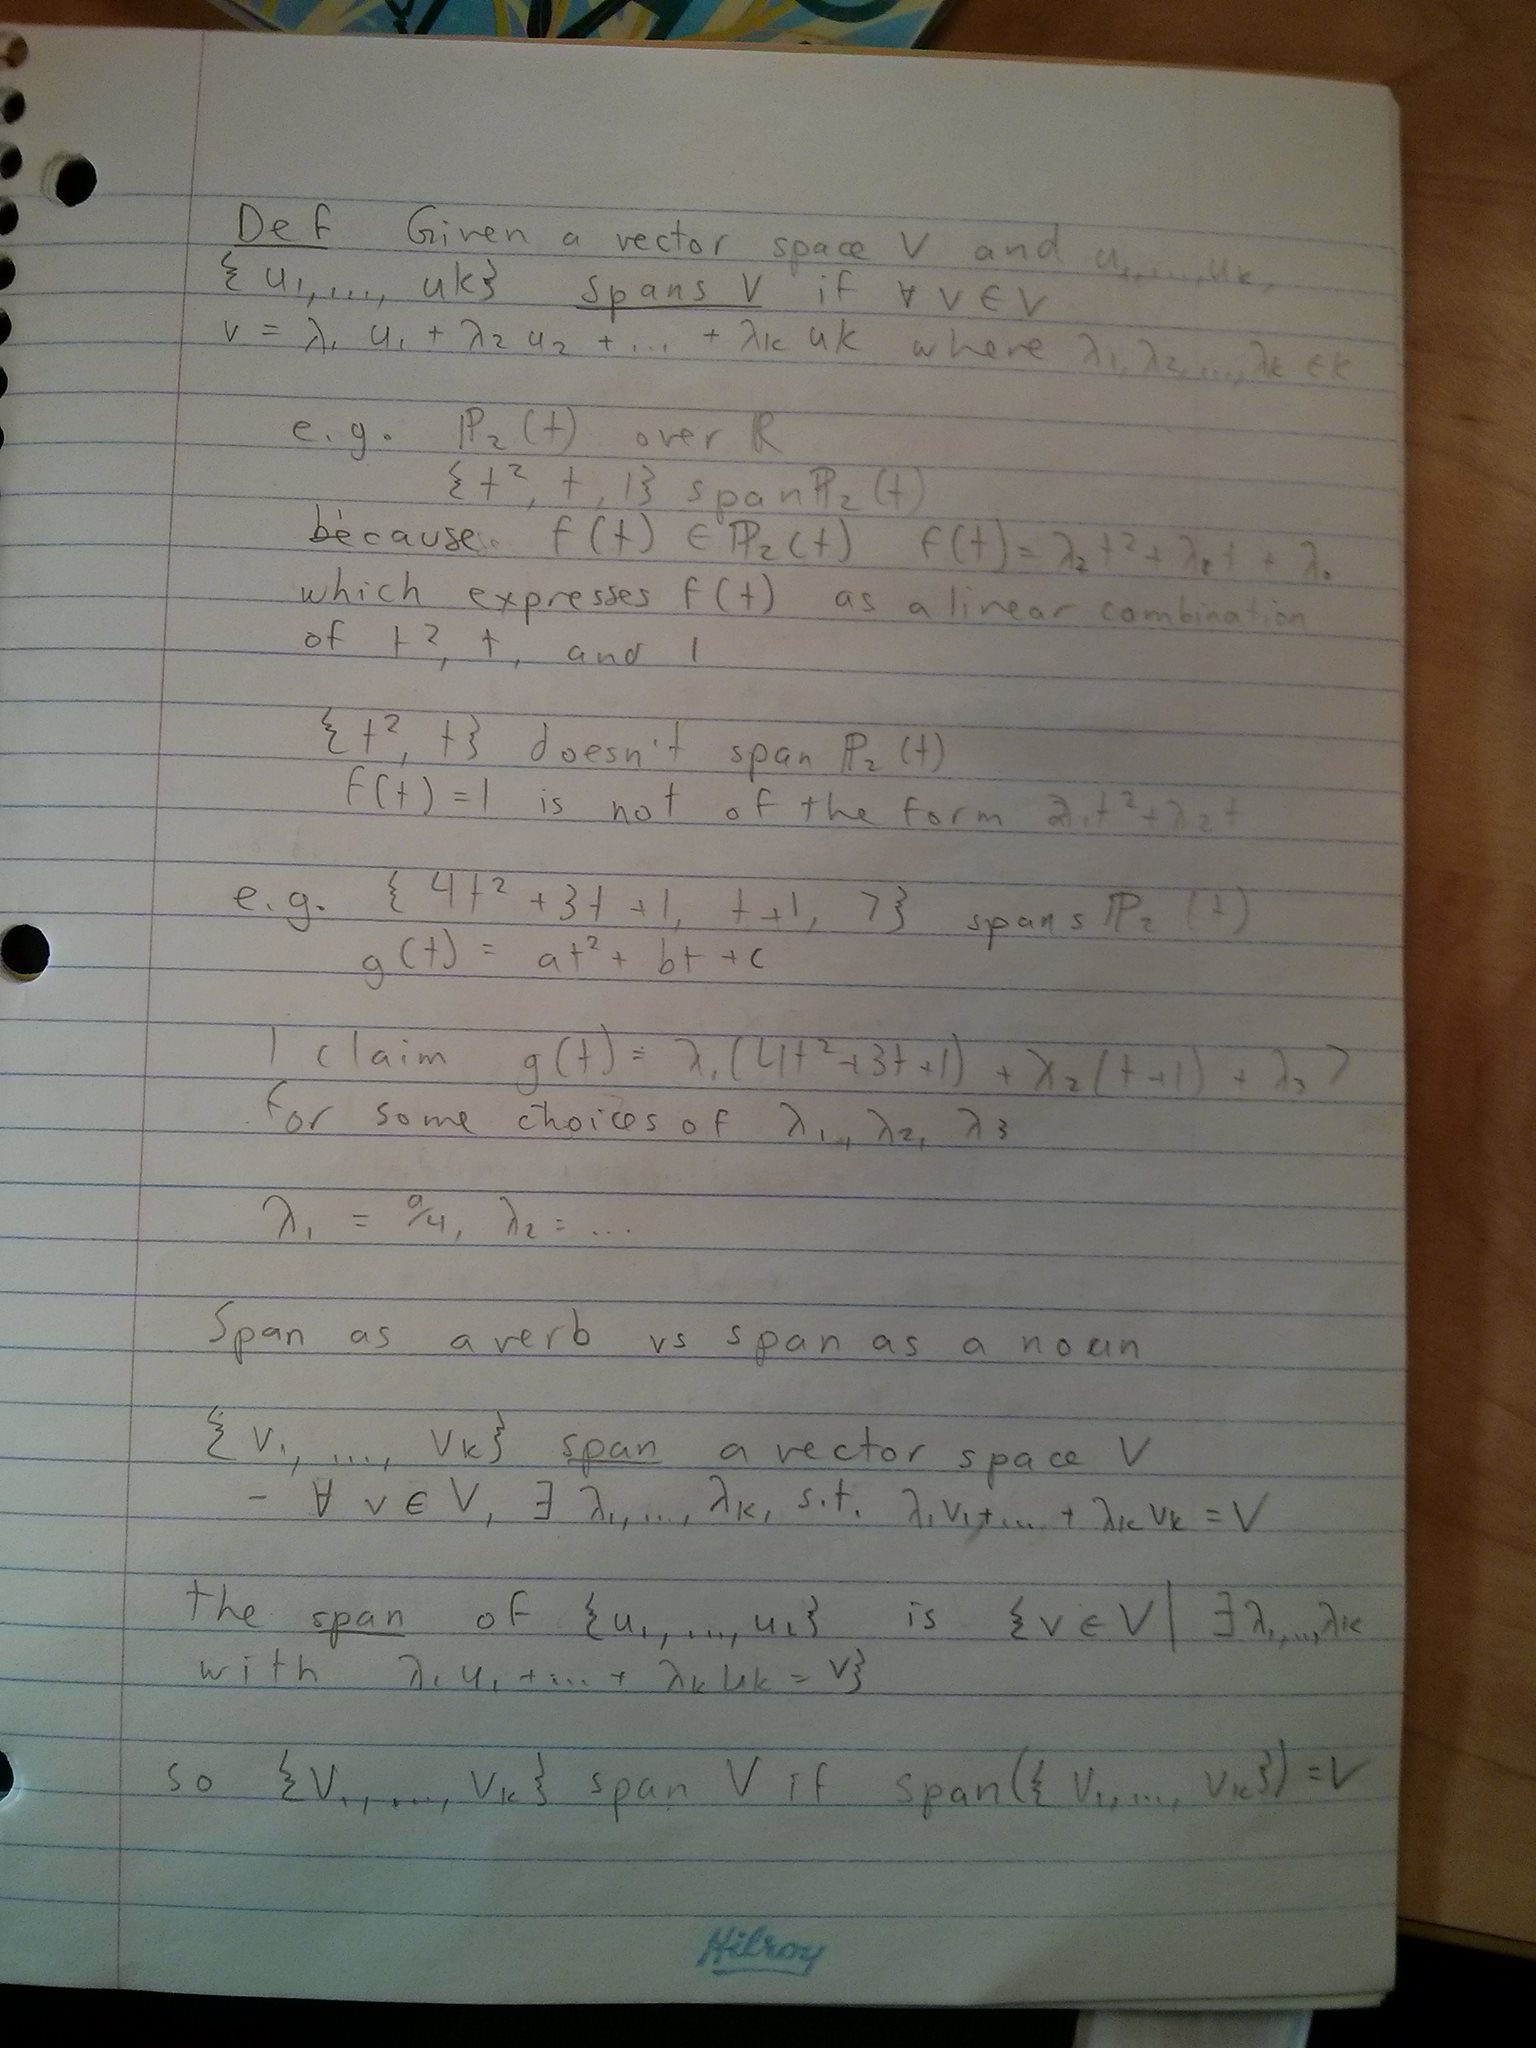 Def Given a vector space V and u₁,...,uk,
{u₁,..., uk} spans V if ∀ v ∈ V
v = λ₁ u₁ + λ₂ u₂ + ... + λk uk where λ₁, λ₂,..., λk ∈ K
e.g. ℙ₂(t) over ℝ
{t², t, 1} span ℙ₂(t)
because f(t) ∈ ℙ₂(t) f(t) = λ₂t² + λ₁t + λ₀
which expresses f(t) as a linear combination
of t², t, and 1
{t², t} doesn't span ℙ₂(t)
f(t) = 1 is not of the form λ₁t² + λ₂t
e.g. {4t² + 3t + 1, t + 1, 7} spans ℙ₂(t)
g(t) = at² + bt + c
I claim g(t) = λ₁(4t² + 3t + 1) + λ₂(t + 1) + λ₃ 7
for some choices of λ₁, λ₂, λ3
λ₁ = a/4, λ₂ = ...
Span as a verb vs span as a noun
{v₁, ..., vk} span a vector space V
- ∀ v ∈ V, ∃ λ₁,..., λk, s.t. λ₁v₁ + ... + λk vk = V
the span of {u₁,..., u } is {v ∈ V | ∃ λ₁,..., λk
with λ₁u₁ + ... + λk uk = v}
so {V₁,..., Vk} span V if span({V₁,..., Vk}) = V
Hilroy